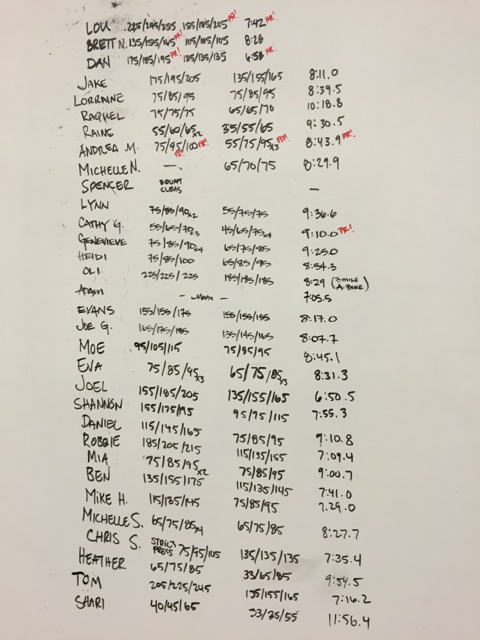 LOU 225/245/255 155/185/205 PR! 7:42 PR!
BRETT N. 135/155/165 PR! 105/105/105 8:28
DAN 175/185/195 PR! 135/135/135 6:58 PR!
JAKE 175/195/205 135/155/165 8:11.0
LORRAINE 75/85/95 75/85/95 8:39.5
RAQUEL 75/75/75 65/65/70 10:18.8
RAINE 55/60/65x2 35/55/65 9:30.5
ANDREA M. 75/95/100 PR! PR! 55/75/95x3 PR! 8:43.9 PR!
MICHELLE N. — 65/70/75 8:29.9
SPENCER CLEANS —
LYNN 75/85/90x2 55/75/75 9:36.6
CATHY G. 55/65/75x3 45/65/75x4 9:10.0 PR!
GENEVIEVE 75/85/90x4 65/75/85 9:25.0
HEIDI 75/85/100 65/85/95 8:54.3
OLI 225/225/225 185/185 8:29 (3 MILE
ADAM 7:05.5
EVANS 155/155/175 155/155/155 8:17.0
JOE G. 165/175/185 135/145/165 8:07.7
MOE 95/105/115 75/85/95 8:45.1
EVA 75/85/95x3 65/75/85x3 8:31.3
JOEL 155/185/205 135/155/165 6:50.5
SHANNON 155/175/195 95/95/115 7:55.3
DANIEL 115/145/165
ROBBIE 185/205/215 75/85/95 9:10.8
MIA 75/85/95x2 115/135/155 7:09.4
BEN 135/155/175 75/85/95 9:00.7
MIKE H. 115/135/145 115/135/145 7:41.0
MICHELLE S. 65/75/85x4 75/85/95 7:29.0
CHRIS S. STRICT PRESS 75/95/105 65/75/85 8:27.7
HEATHER 65/75/85 135/135/135 7:35.4
TOM 205/225/245 33/65/85 9:54.5
SHARI 40/45/65 135/155/165 7:16.2
33/75/55 11:56.4